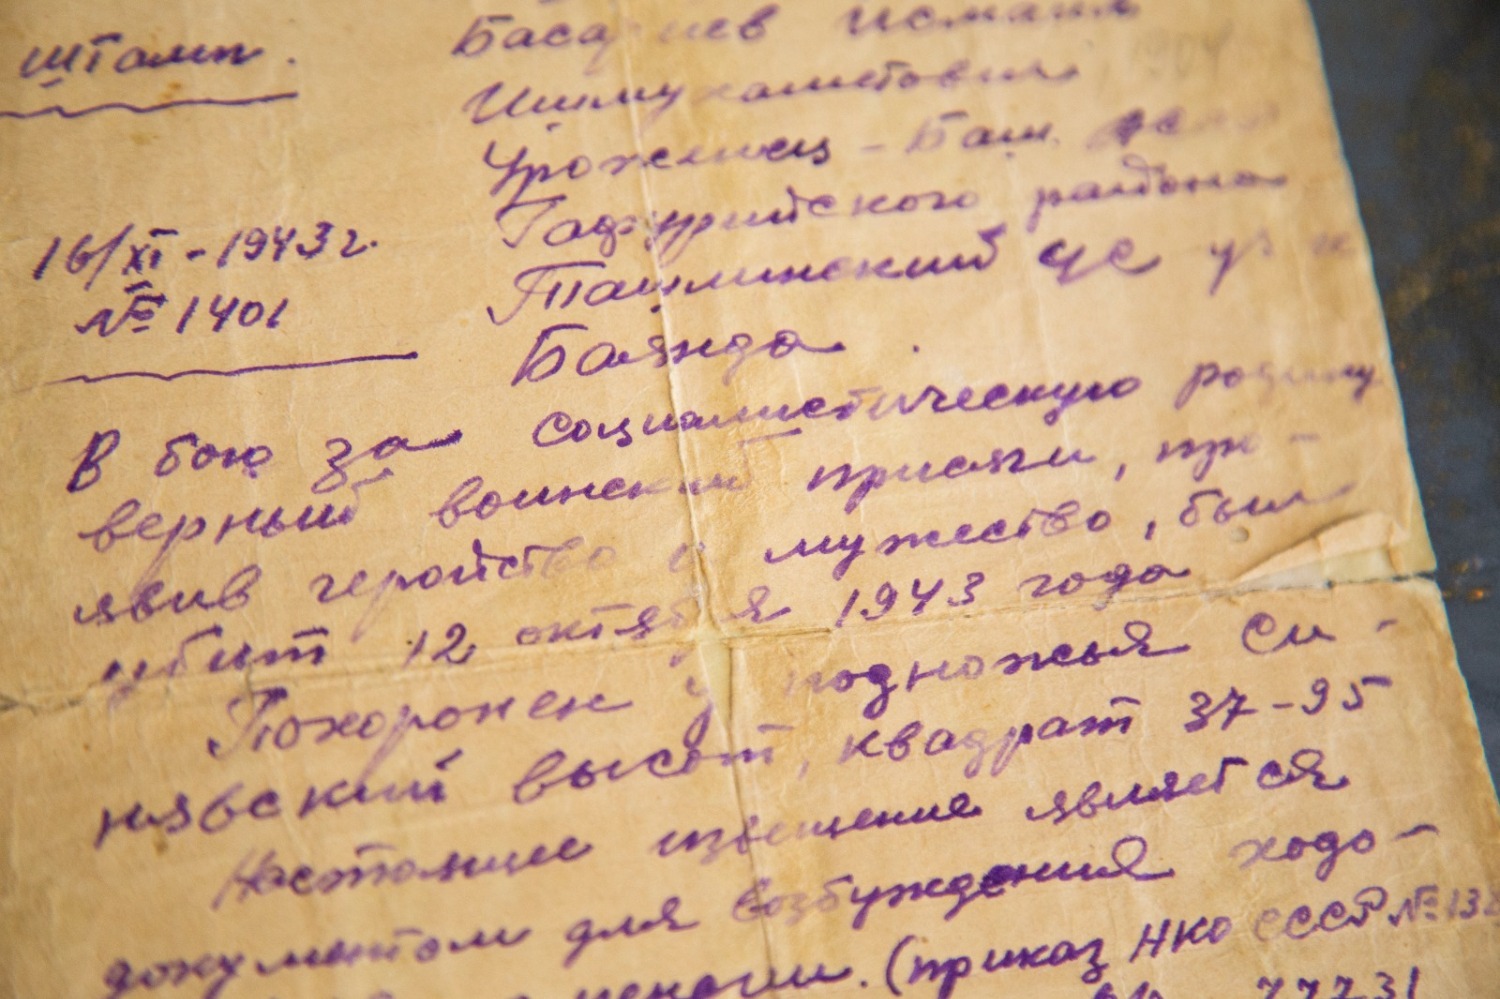 штамп.
16/XI-1943г.
№ 1401
Исмаил
Ишмухаметович
Уроженец - Баш.
Гафурийского района
Ташлинский с/с
Баянда.
В бою за социалистическую родину
верный воинской присяги, про-
явив геройство и мужество, был
убит 12 октября 1943 года
Похоронен у подножья Си-
нявский высот, квадрат 37-95
Настоящие извещение является
документом для возбуждения ходо-
(приказ НКО СССР №